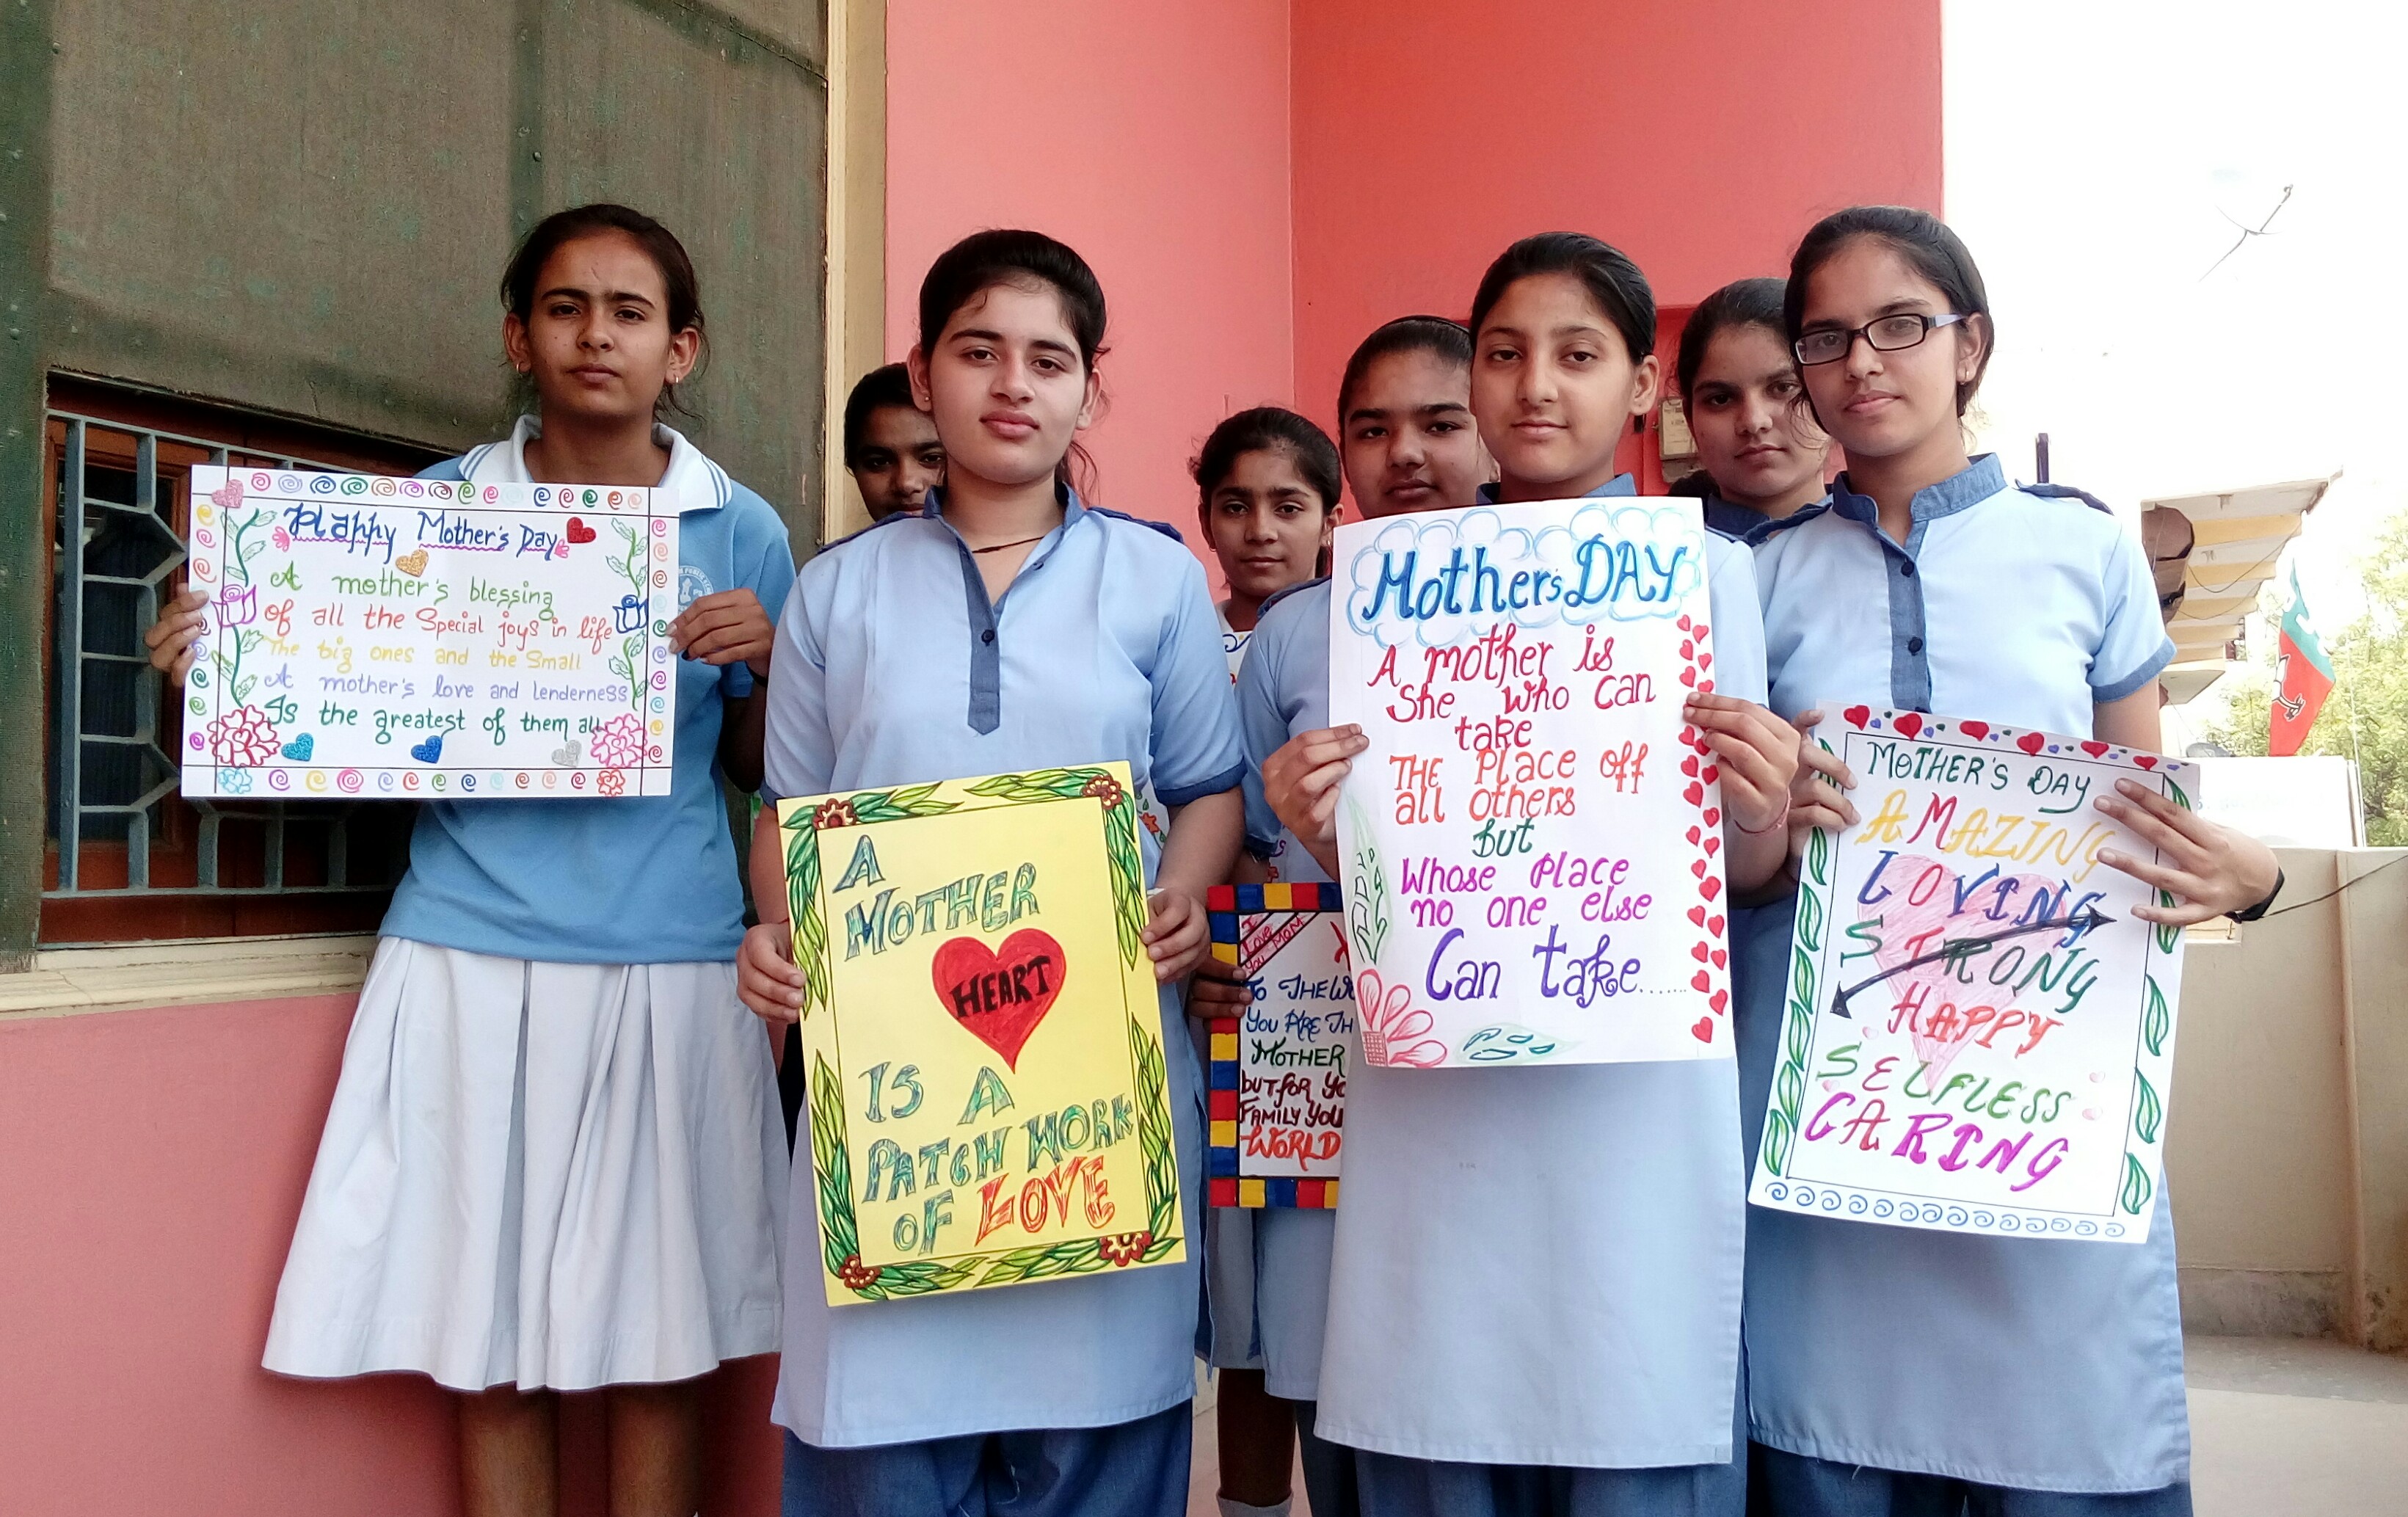 Happy Mother's Day
A mother's blessing
of all the Special joys in life
The big ones and the Small
A mother's love and tenderness
Is the greatest of them all
A
MOTHER
HEART
IS A
PATCH WORK
OF LOVE
I
Love
You
MOM
TO THE
YOU ARE
MOTHER
but FOR
FAMILY YOU
WORLD
Mother's DAY
A mother is
She who can
take
THE Place off
all others
But
Whose Place
no one else
Can take.......
MOTHER'S DAY
AMAZING
LOVING
STRONG
HAPPY
SELFLESS
CARING